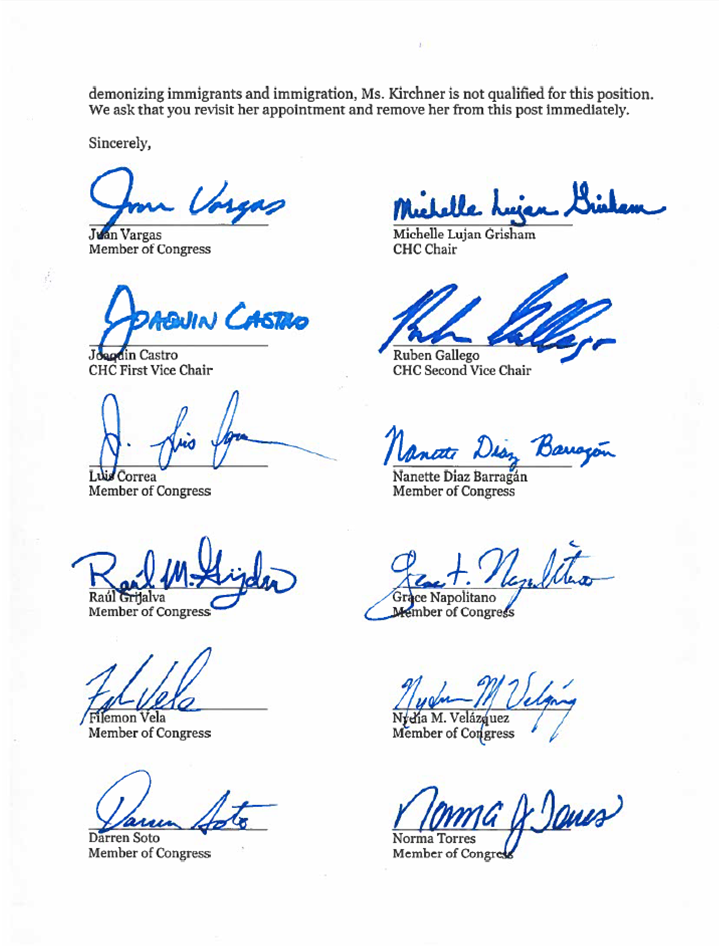 demonizing immigrants and immigration, Ms. Kirchner is not qualified for this position.
We ask that you revisit her appointment and remove her from this post immediately.
Sincerely,
Juan Vargas
Michelle Lujan Grisham
Juan Vargas
Member of Congress
Michelle Lujan Grisham
CHC Chair
JOAQUIN CASTRO
Ruben Gallego
Joaquin Castro
CHC First Vice Chair
Ruben Gallego
CHC Second Vice Chair
J. Luis
Nanette Diaz Barragán
Luis Correa
Member of Congress
Nanette Diaz Barragán
Member of Congress
Raúl M. Grijalva
Grace F. Napolitano
Raúl Grijalva
Member of Congress
Grace Napolitano
Member of Congress
Fil Vela
Nydia M Velázquez
Filemon Vela
Member of Congress
Nydia M. Velázquez
Member of Congress
Darren Soto
Norma J Torres
Darren Soto
Member of Congress
Norma Torres
Member of Congress